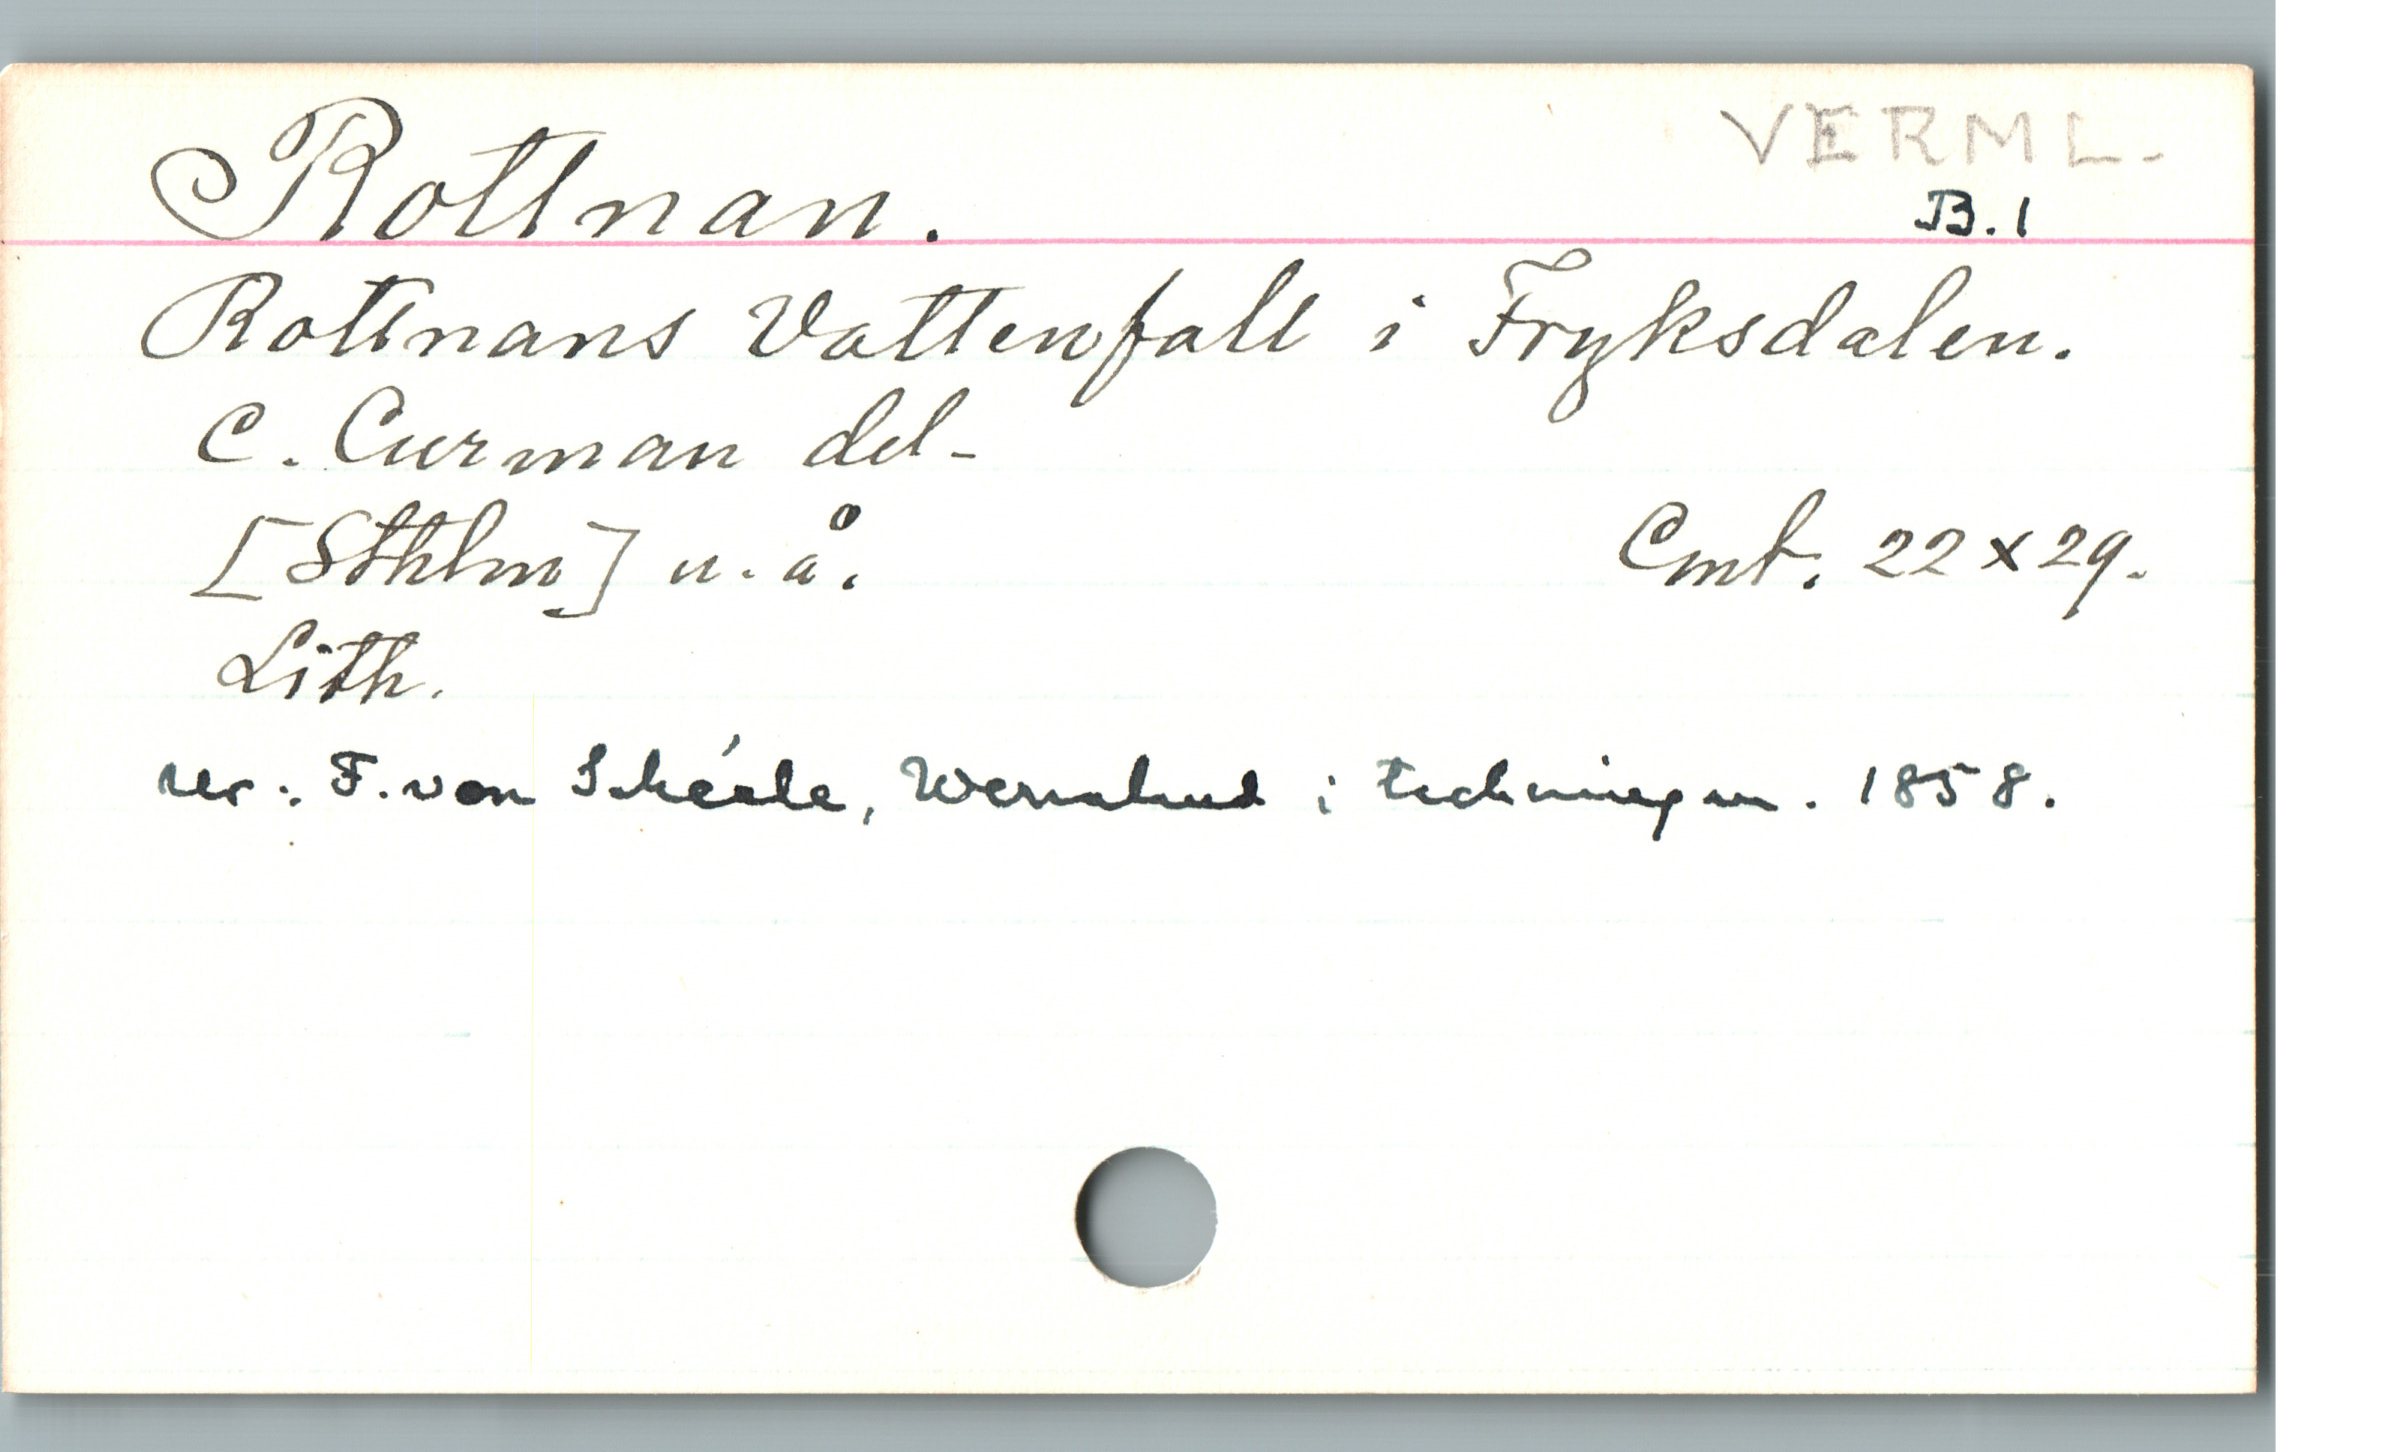 VERML.
Rottnan. B.1
Rottnans Vattenfall i Fryksdalen.
C. Curman del-
[Sthlm] u. å. Cmt. 22 x 29.
Lith.
Ur: F. von Schéele, Wermland i teckningar. 1858.